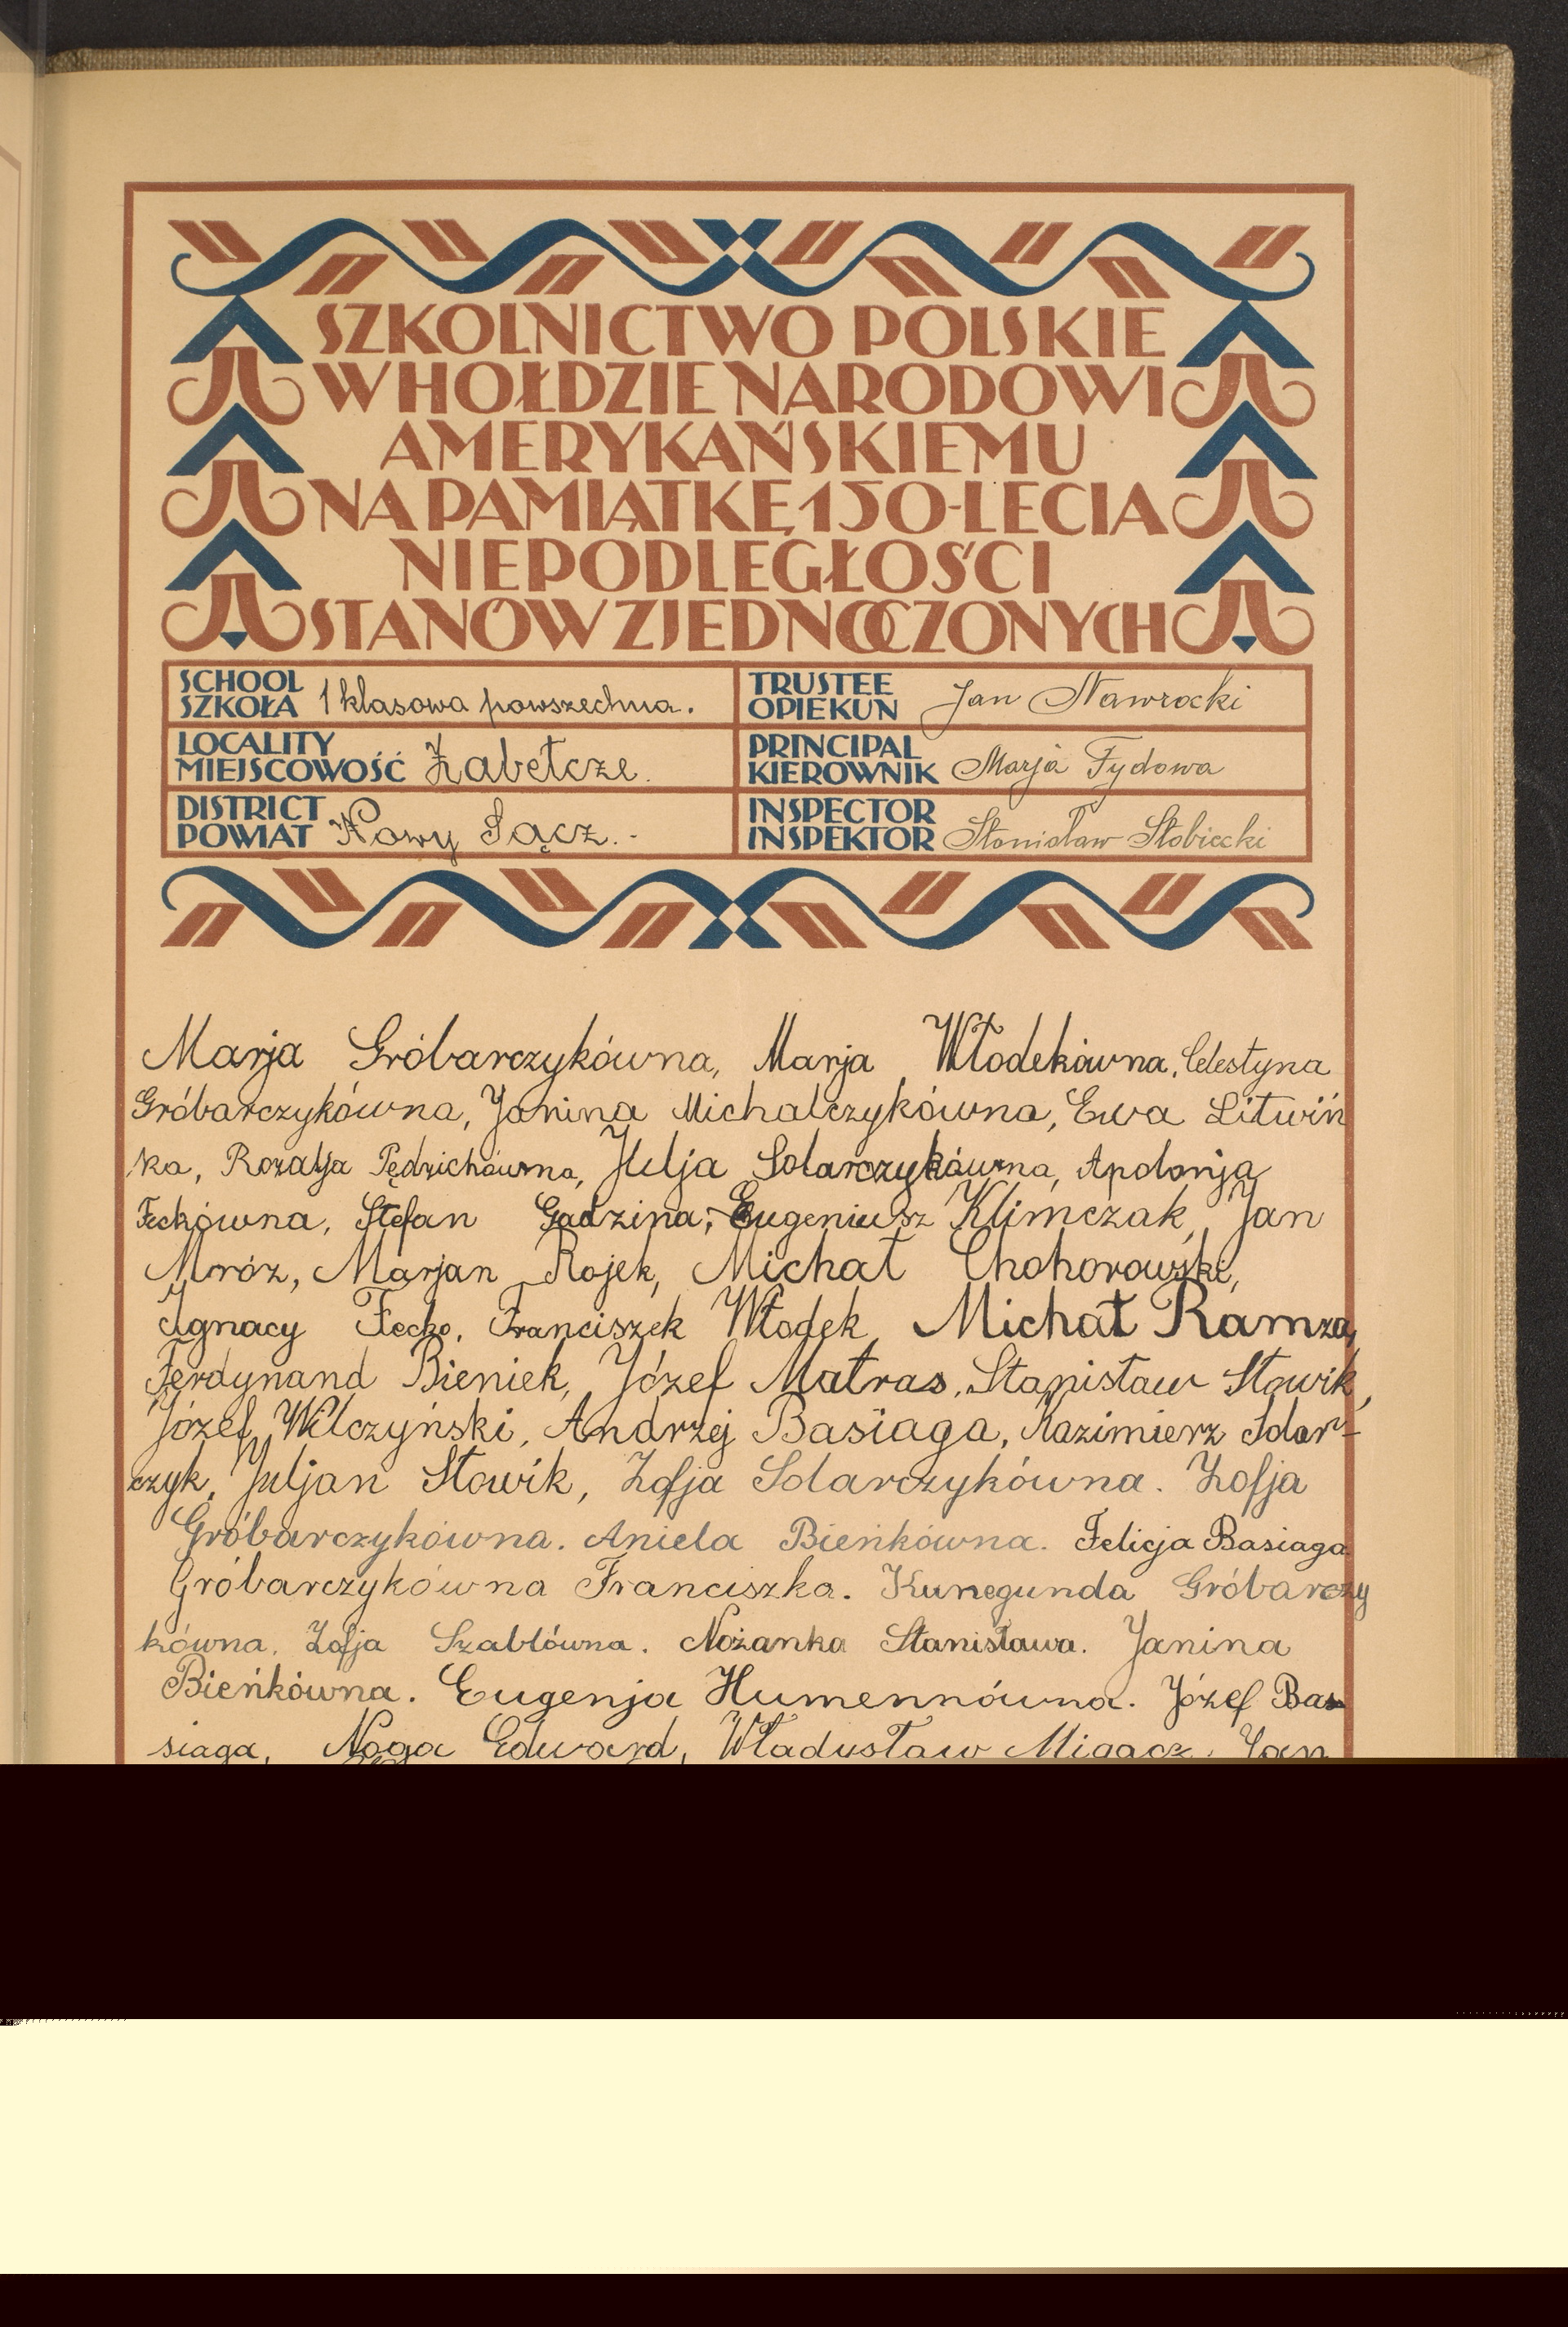 SZKOLNICTWO POLSKIE
W HOŁDZIE NARODOWI
AMERYKAŃSKIEMU
NA PAMIĄTKĘ 150-LECIA
NIEPODLEGŁOŚCI
STANÓW ZJEDNOCZONYCH
SCHOOL
SZKOŁA 1 klasowa powszechna.
LOCALITY
MIEJSCOWOŚĆ Żabełcze.
DISTRICT
POWIAT Nowy Sącz.-
TRUSTEE
OPIEKUN Jan Nawrocki
PRINCIPAL
KIEROWNIK Marja Fydowa
INSPECTOR
INSPEKTOR Stanisław Słobiecki
Marja Gróbarczykówna, Marja Włodekówna, Celestyna
Gróbarczykówna, Janina Michalczykówna, Ewa Litwiń
ka, Rozalja Pędzichówna, Julja Solarczykówna, Apolonja
Feckówna, Stefan Gadzina, Eugeniusz Klimczak, Jan
Mróz, Marjan Rojek, Michał Chohorowski,
Ignacy Fecko, Franciszek Włodek, Michał Ramza,
Ferdynand Bieniek, Józef Matras, Stanisław Słowik,
Józef Wilczyński, Andrzej Basiaga, Kazimierz Solar-
czyk, Juljan Słowik, Zofja Solarczykówna. Zofja
Gróbarczykówna. Aniela Bieńkówna. Felicja Basiaga
Gróbarczykówna Franciszka. Kunegunda Gróbarczy
kówna. Zofja Szablówna. Nożanka Stanisława. Janina
Bieńkówna. Eugenja Humennówna. Józef Ba
siaga, Noga Edward, Władysław Migacz, Jan